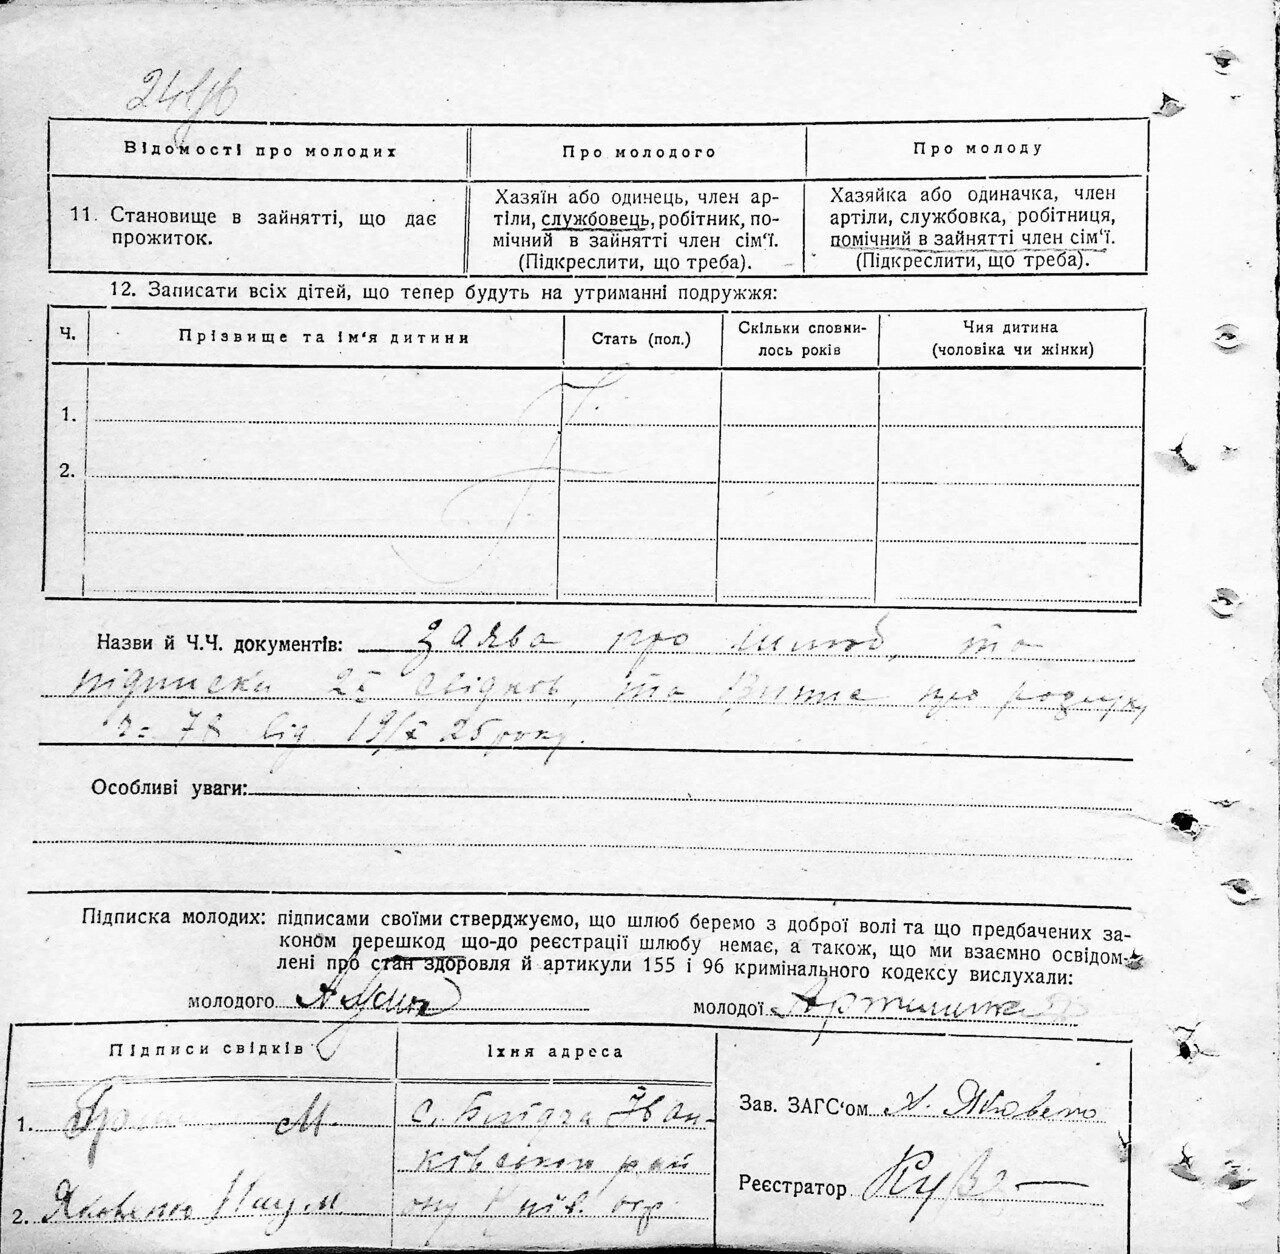 Відомості про молодих
Про молодого
Про молоду
11. Становище в зайнятті, що дає
прожиток.
Хазяїн або одинець, член ар-
тіли, службовець, робітник, по-
мічний в зайнятті член сім'ї.
(Підкреслити, що треба).
Хазяйка або одиначка, член
артіли, службовка, робітниця,
помічний в зайнятті член сім'ї.
(Підкреслити, що треба).
12. Записати всіх дітей, що тепер будуть на утриманні подружжя:
Ч.
Прізвище та ім'я дитини
Стать (пол.)
Скільки сповни-
лось років
Чия дитина
(чоловіка чи жінки)
1.
2.
Назви й Ч.Ч. документів: заява про шлюб, та
підписка 2х свідків, та Витяг про розлуку
ч= 78 від 19/X 25 року.
Особливі уваги:
Підписка молодих: підписами своїми стверджуємо, що шлюб беремо з доброї волі та що предбачених за-
коном перешкод що-до реєстрації шлюбу немає, а також, що ми взаємно освідом-
лені про стан здоровля й артикули 155 і 96 кримінального кодексу вислухали:
молодого
молодої
Підписи свідків
Їхня адреса
1. М.
с. Іван-
ківського рай
ону Київ. окр.
2. Яковенко Наум
Зав. ЗАГС'ом Яковенко
Реєстратор